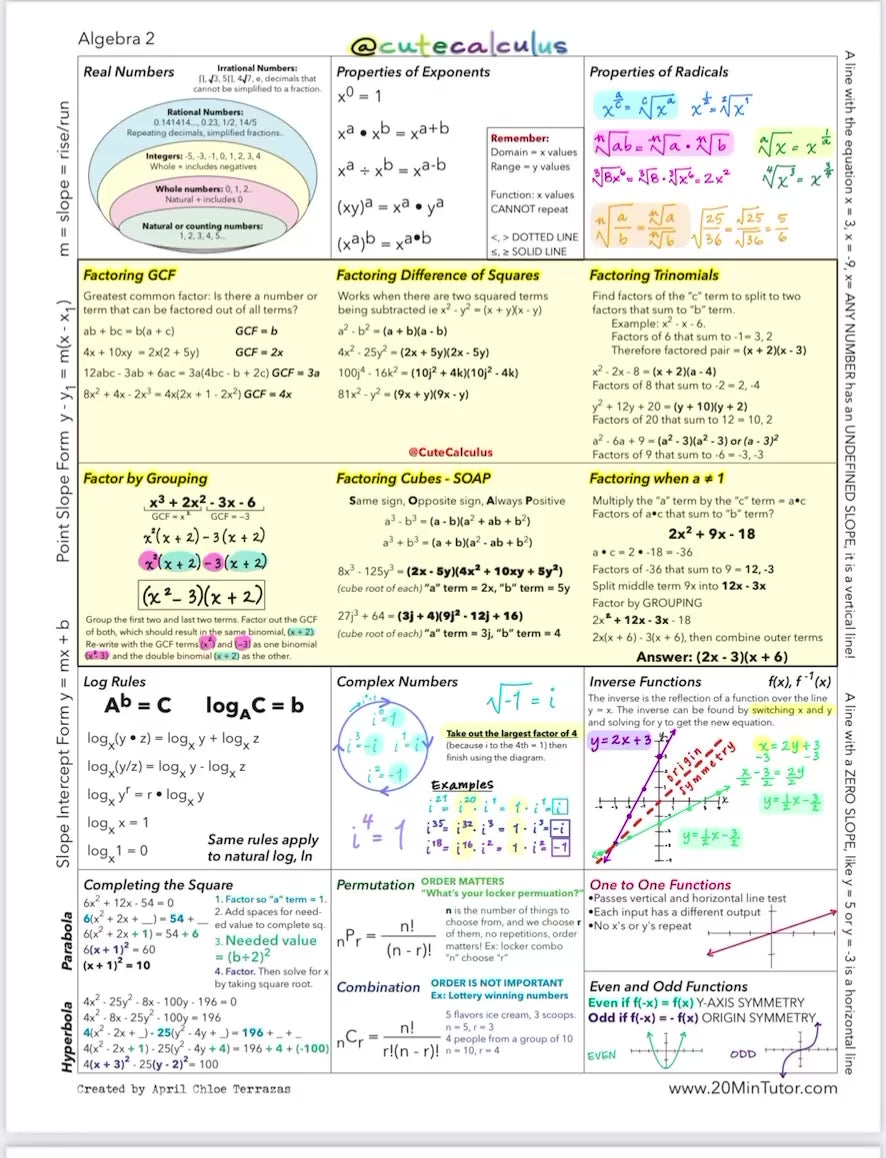 Algebra 2
@cutecalculus
m = slope = rise/run
Point Slope Form y - y₁ = m(x - x₁)
Slope Intercept Form y = mx + b
Parabola
Hyperbola
Real Numbers
Irrational Numbers:
∏, √3, 5∏, 4√7, e, decimals that
cannot be simplified to a fraction.
Rational Numbers:
0.141414..., 0.23, 1/2, 14/5
Repeating decimals, simplified fractions..
Integers: -5, -3, -1, 0, 1, 2, 3, 4
Whole + includes negatives
Whole numbers: 0, 1, 2..
Natural + includes 0
Natural or counting numbers:
1, 2, 3, 4, 5...
Properties of Exponents
x⁰ = 1
xᵃ • xᵇ = xᵃ⁺ᵇ
xᵃ ÷ xᵇ = xᵃ⁻ᵇ
(xy)ᵃ = xᵃ • yᵃ
(xᵃ)ᵇ = xᵃ•ᵇ
Remember:
Domain = x values
Range = y values
Function: x values
CANNOT repeat
<, > DOTTED LINE
≤, ≥ SOLID LINE
Properties of Radicals
x^(a/c) = ᶜ√xᵃ x^(1/2) = ²√x¹
ⁿ√ab = ⁿ√a • ⁿ√b
ᵃ√x = x^(1/a)
³√8x⁶ = ³√8 • ³√x⁶ = 2x²
⁴√x³ = x^(3/4)
ⁿ√(a/b) = ⁿ√a/ⁿ√b √(25/36) = √25/√36 = 5/6
Factoring GCF
Greatest common factor: Is there a number or
term that can be factored out of all terms?
ab + bc = b(a + c) GCF = b
4x + 10xy = 2x(2 + 5y) GCF = 2x
12abc - 3ab + 6ac = 3a(4bc - b + 2c) GCF = 3a
8x² + 4x - 2x³ = 4x(2x + 1 - 2x²) GCF = 4x
Factoring Difference of Squares
Works when there are two squared terms
being subtracted ie x² - y² = (x + y)(x - y)
a² - b² = (a + b)(a - b)
4x² - 25y² = (2x + 5y)(2x - 5y)
100j⁴ - 16k² = (10j² + 4k)(10j² - 4k)
81x² - y² = (9x + y)(9x - y)
@CuteCalculus
Factoring Trinomials
Find factors of the "c" term to split to two
factors that sum to "b" term.
Example: x² - x - 6.
Factors of 6 that sum to -1= 3, 2
Therefore factored pair = (x + 2)(x - 3)
x² - 2x - 8 = (x + 2)(a - 4)
Factors of 8 that sum to -2 = 2, -4
y² + 12y + 20 = (y + 10)(y + 2)
Factors of 20 that sum to 12 = 10, 2
a² - 6a + 9 = (a² - 3)(a² - 3) or (a - 3)²
Factors of 9 that sum to -6 = -3, -3
Factor by Grouping
x³ + 2x² - 3x - 6
GCF = x² GCF = -3
x²(x + 2) - 3(x + 2)
x²(x + 2) - 3(x + 2)
(x² - 3)(x + 2)
Group the first two and last two terms. Factor out the GCF
of both, which should result in the same binomial, (x + 2)
Re-write with the GCF terms (x²) and (-3) as one binomial
(x²- 3) and the double binomial (x + 2) as the other.
Factoring Cubes - SOAP
Same sign, Opposite sign, Always Positive
a³ - b³ = (a - b)(a² + ab + b²)
a³ + b³ = (a + b)(a² - ab + b²)
8x³ - 125y³ = (2x - 5y)(4x² + 10xy + 5y²)
(cube root of each) "a" term = 2x, "b" term = 5y
27j³ + 64 = (3j + 4)(9j² - 12j + 16)
(cube root of each) "a" term = 3j, "b" term = 4
Factoring when a ≠ 1
Multiply the "a" term by the "c" term = a•c
Factors of a•c that sum to "b" term?
2x² + 9x - 18
a • c = 2 • -18 = -36
Factors of -36 that sum to 9 = 12, -3
Split middle term 9x into 12x - 3x
Factor by GROUPING
2x² + 12x - 3x - 18
2x(x + 6) - 3(x + 6), then combine outer terms
Answer: (2x - 3)(x + 6)
Log Rules
Aᵇ = C log_A C = b
logₓ(y • z) = logₓ y + logₓ z
logₓ(y/z) = logₓ y - logₓ z
logₓ yʳ = r • logₓ y
logₓ x = 1
logₓ1 = 0
Same rules apply
to natural log, ln
Complex Numbers
√-1 = i
i⁰=1
i³=-i i¹=i
i²=-1
i⁴ = 1
Take out the largest factor of 4
(because i to the 4th = 1) then
finish using the diagram.
Examples
i²¹ = i²⁰ • i¹ = 1 • i¹ = i
i³⁵ = i³² • i³ = 1 • i³ = -i
i¹⁸ = i¹⁶ • i² = 1 • i² = -1
Inverse Functions f(x), f⁻¹(x)
The inverse is the reflection of a function over the line
y = x. The inverse can be found by switching x and y
and solving for y to get the new equation.
y = 2x+3
origin
symmetry
y
x
x = 2y + 3
-3 -3
x/2 - 3/2 = 2y/2
y = ½x - 3/2
y = ½x - 3/2
Completing the Square
6x² + 12x - 54 = 0
6(x² + 2x + _) = 54 + _
6(x² + 2x + 1) = 54 + 6
6(x + 1)² = 60
(x + 1)² = 10
1. Factor so "a" term = 1.
2. Add spaces for need-
ed value to complete sq.
3. Needed value
= (b÷2)²
4. Factor. Then solve for x
by taking square root.
4x² - 25y² - 8x - 100y - 196 = 0
4x² - 8x - 25y² - 100y = 196
4(x² - 2x + _) - 25(y² - 4y + _) = 196 + _ + _
4(x² - 2x + 1) - 25(y² - 4y + 4) = 196 + 4 + (-100)
4(x + 3)² - 25(y - 2)² = 100
Permutation ORDER MATTERS
"What's your locker permuation?"
nPr = n!/(n - r)!
n is the number of things to
choose from, and we choose r
of them, no repetitions, order
matters! Ex: locker combo
"n" choose "r"
Combination ORDER IS NOT IMPORTANT
Ex: Lottery winning numbers
nCr = n!/r!(n - r)!
5 flavors ice cream, 3 scoops.
n = 5, r = 3
4 people from a group of 10
n = 10, r = 4
One to One Functions
•Passes vertical and horizontal line test
•Each input has a different output
•No x's or y's repeat
Even and Odd Functions
Even if f(-x) = f(x) Y-AXIS SYMMETRY
Odd if f(-x) = - f(x) ORIGIN SYMMETRY
EVEN ODD
A line with the equation x = 3, x = -9, x= ANY NUMBER has an UNDEFINED SLOPE, it is a vertical line!
A line with a ZERO SLOPE, like y = 5 or y = -3 is a horizontal line
Created by April Chloe Terrazas
www.20MinTutor.com